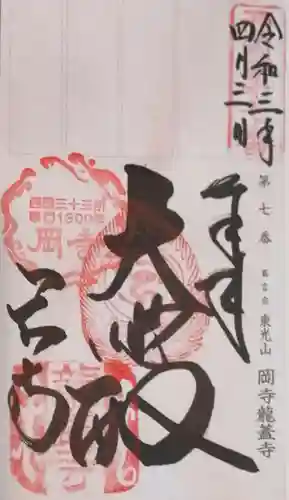 令和三年
四月三日
第七番 真言宗 東光山 岡寺龍蓋寺
奉拝
大悲殿
岡寺
西国三十三所
草創1300年
岡寺